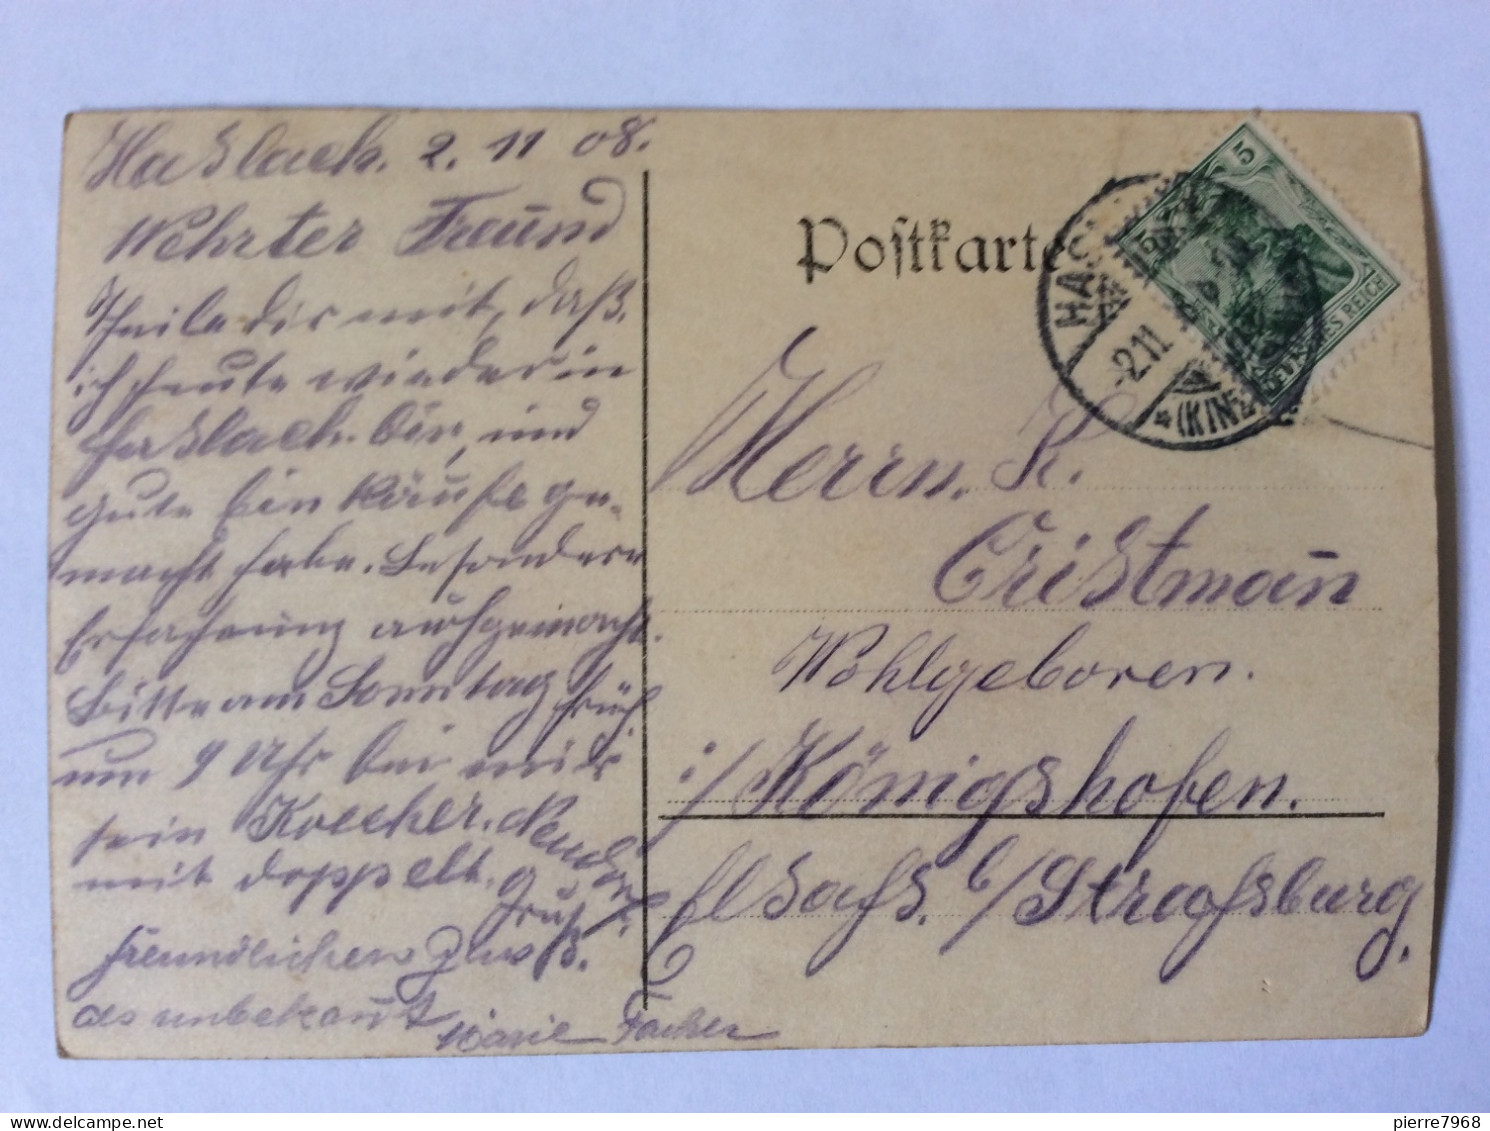 Haslach. 2. 11 08.
Wehrter Freund
Theile dir mit, daß
ich heute wieder in
Haslach bin, und
gute Einkäufe ge-
macht habe. Besondere
Erfahrung aufgemacht.
Bitte am Sonntag früh
um 9 Uhr bei mir
sein
mit doppelt. Gruß
freundlichen Gruß.
als unbekant
Marie
Postkarte
5 5
DEUTSCHES REICH
HASLACH
-2.11.
*(KINZ
Herrn. K.
Cristman
Wohlgeboren.
i/Königshofen.
Elsass. b/Strassburg.
pierre7968